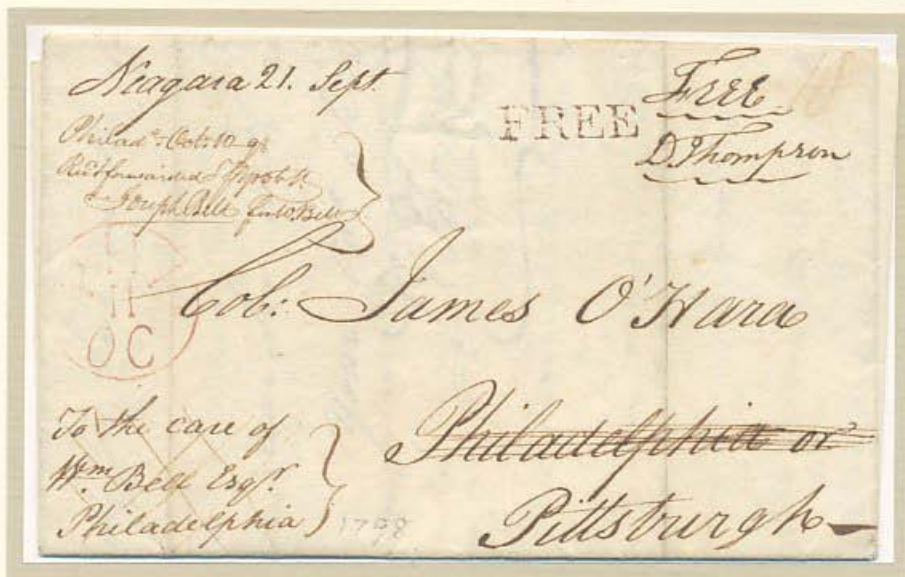 Niagara 21. Sept.
FREE
Free
D Thompson
Philad.ᵃ Oct: 10 98
Rec.d forwarded
Joseph Bell for W. Bell
11
OC
Col: James O'Hara
Philadelphia or
Pittsburgh
To the care of
Wm Bell Esqr.
Philadelphia
1798